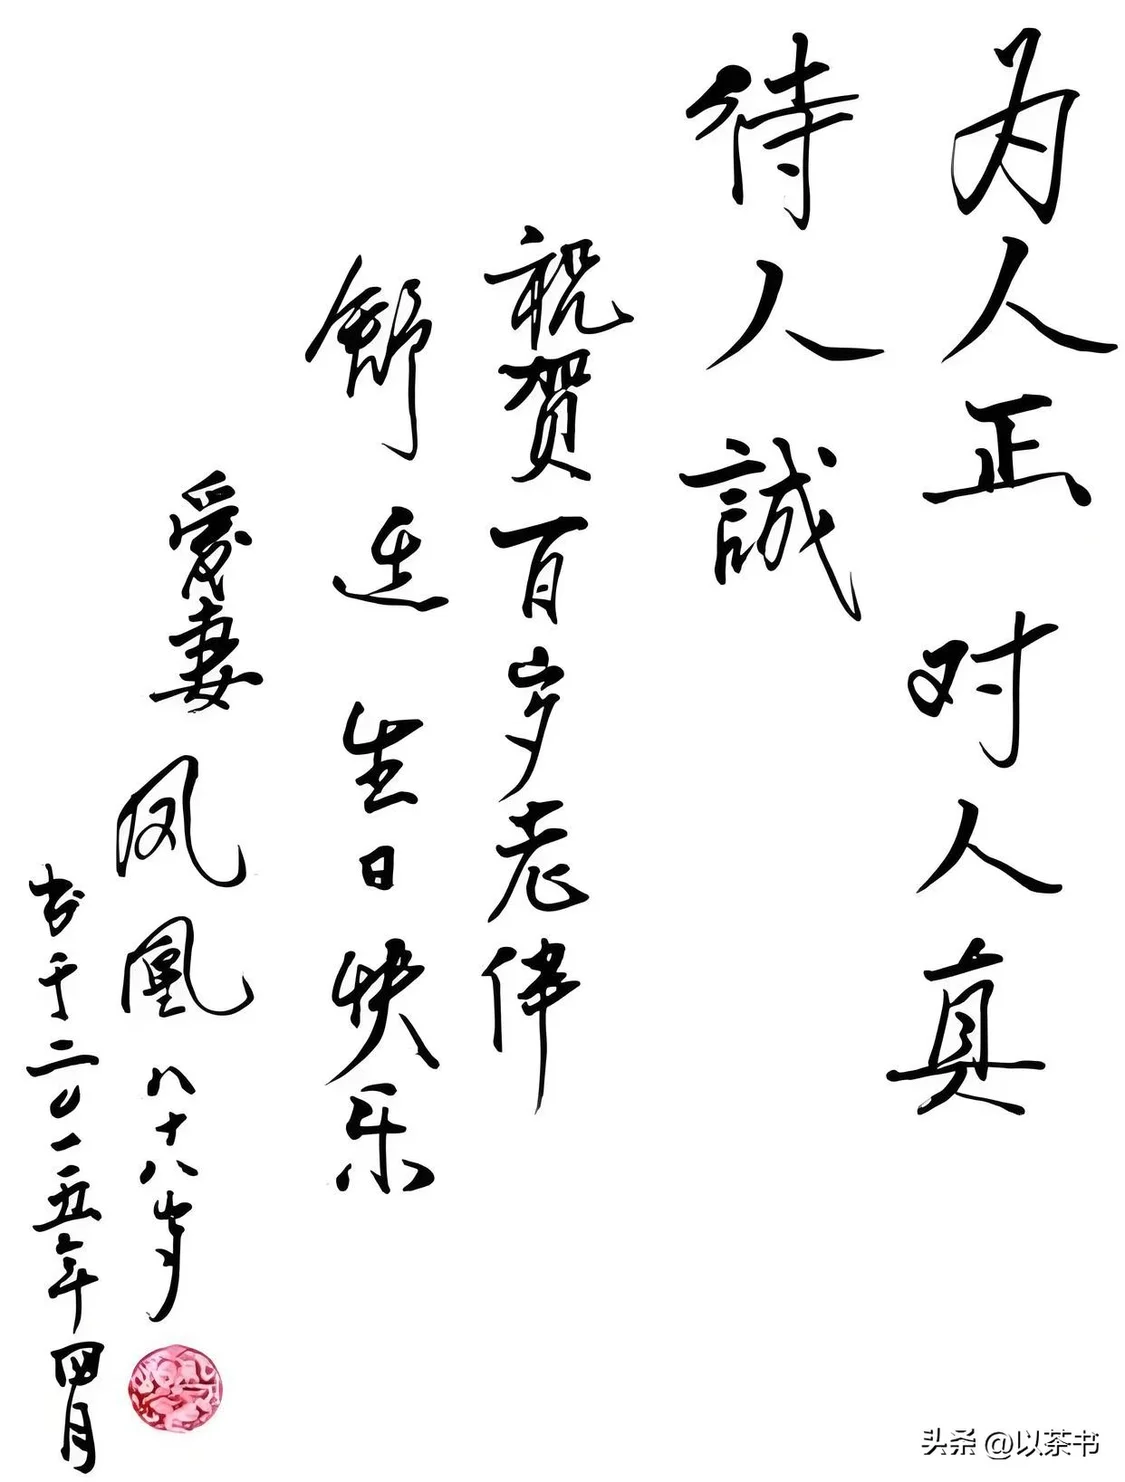 为人正 对人真
待人誠
祝贺百岁老伴
舒廷 生日快乐
爱妻凤凰 八十八岁
书于二〇一五年四月
头条 @以茶书